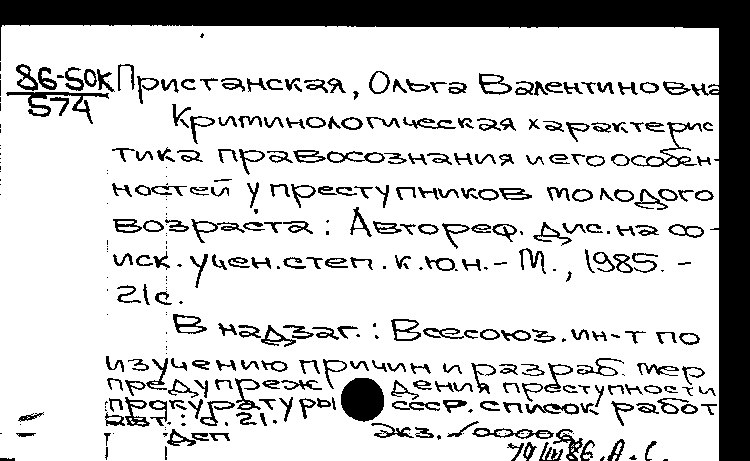 86-50к Пристанская, Ольга Валентиновна
574
Криминологическая характерис
тика правосознания и его особен-
ностей у преступников молодого
возраста : Автореф. дис. на со-
иск. учен. степ. к.ю.н. - М., 1985. -
21с.
В надзаг. : Всесоюз. ин-т по
изучению причин и разраб. мер
предупреждения преступности
прокуратуры СССР. список работ
авт. : с. 21.
деп экз.
А. С.